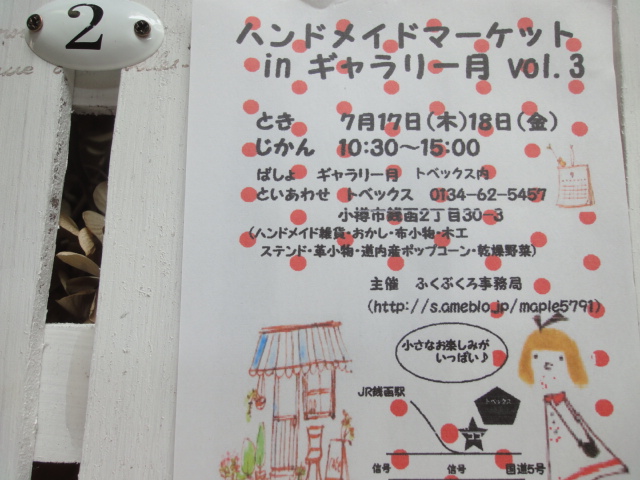 2
ハンドメイドマーケット
in ギャラリー月 vol.3
とき 7月17日(木)18日(金)
じかん 10:30~15:00
ばしょ ギャラリー月 トベックス内
といあわせ トベックス 0134-62-5457
小樽市銭函2丁目30-3
(ハンドメイド雑貨・おかし・布小物・木工
ステンド・革小物・道内産ポップコーン・乾燥野菜)
主催 ふくぶくろ事務局
(http://s.ameblo.jp/maple5791)
小さなお楽しみが
いっぱい♪
JR銭函駅
トベックス
信号 信号 国道5号